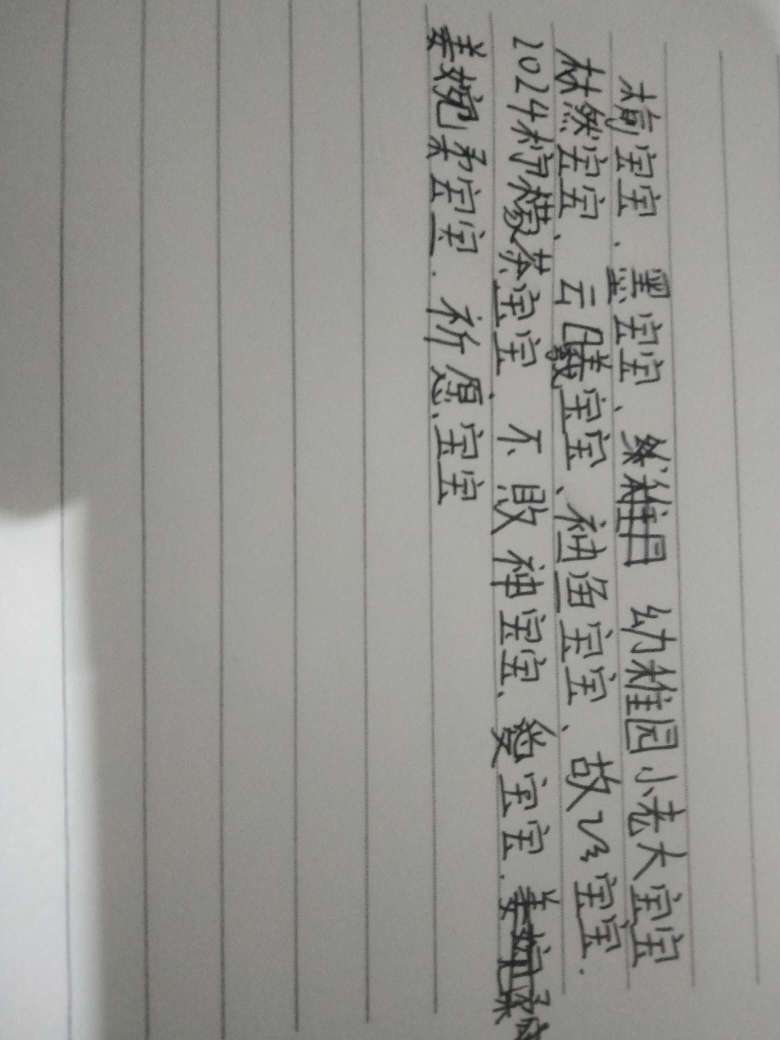 宝宝、墨宝宝、幼稚园小老大宝宝
林然宝宝、云曦宝宝、袖鱼宝宝、故宝宝.
2024柠檬茶宝宝、不败神宝宝、宝宝.
姜婉柔宝宝.祈愿宝宝